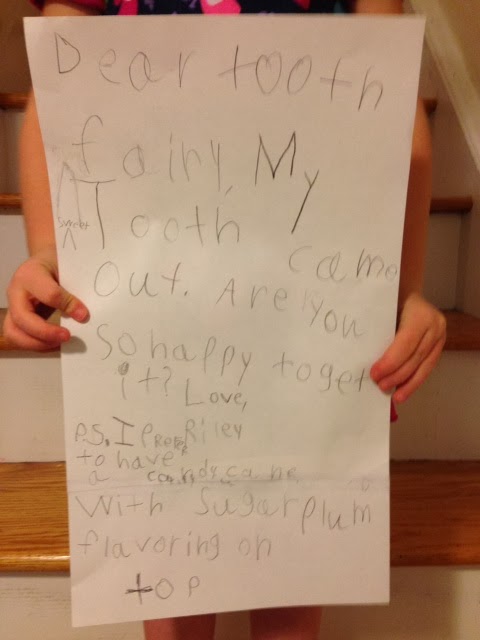 Dear tooth
fairy, My
Tooth
came
out. Are you
So happy to get
it? Love,
Riley
P.S. I PReFeR
to have
a candy cane
With Sugarplum
flavoring on
top